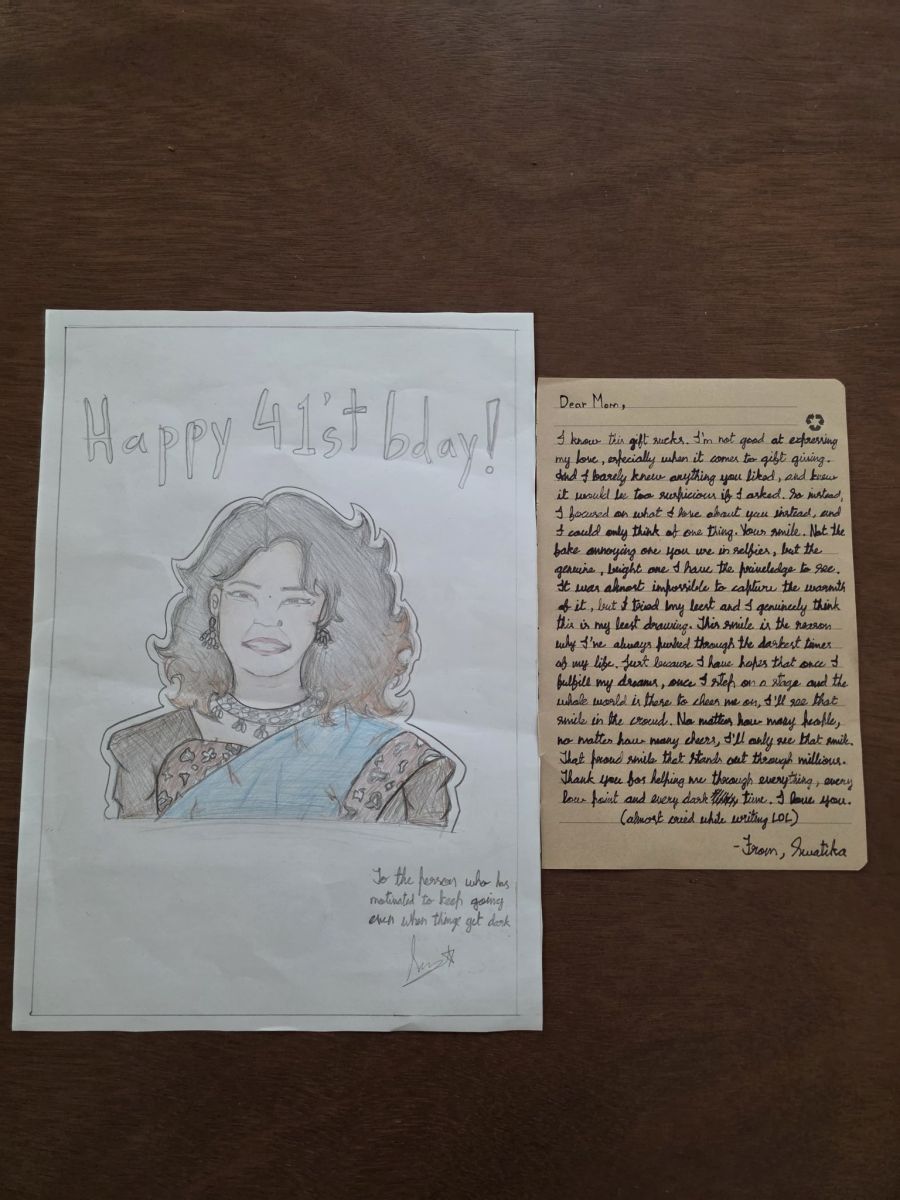 Happy 41'st bday!
To the person who has
motivated to keep going
even when things get dark
Dear Mom,
I know this gift sucks. I'm not good at expressing
my love, especially when it comes to gift giving.
And I barely knew anything you liked, and knew
it would be too suspicious if I asked. So instead,
I focused on what I love about you instead, and
I could only think of one thing. Your smile. Not the
fake annoying one you use in selfies, but the
genuine, bright one I have the priveledge to see.
It was almost impossible to capture the warmth
of it, but I tried my best and I genuinely think
this is my best drawing. This smile is the reason
why I've always pushed through the darkest times
of my life. Just because I have hopes that once I
fulfill my dreams, once I step on a stage and the
whole world is there to cheer me on, I'll see that
smile in the crowd. No matter how many people,
no matter how many cheers, I'll only see that smile.
That proud smile that stands out through millions.
Thank you for helping me through everything, every
low point and every dark time. I love you.
(almost cried while writing LOL)
-From, Swatika